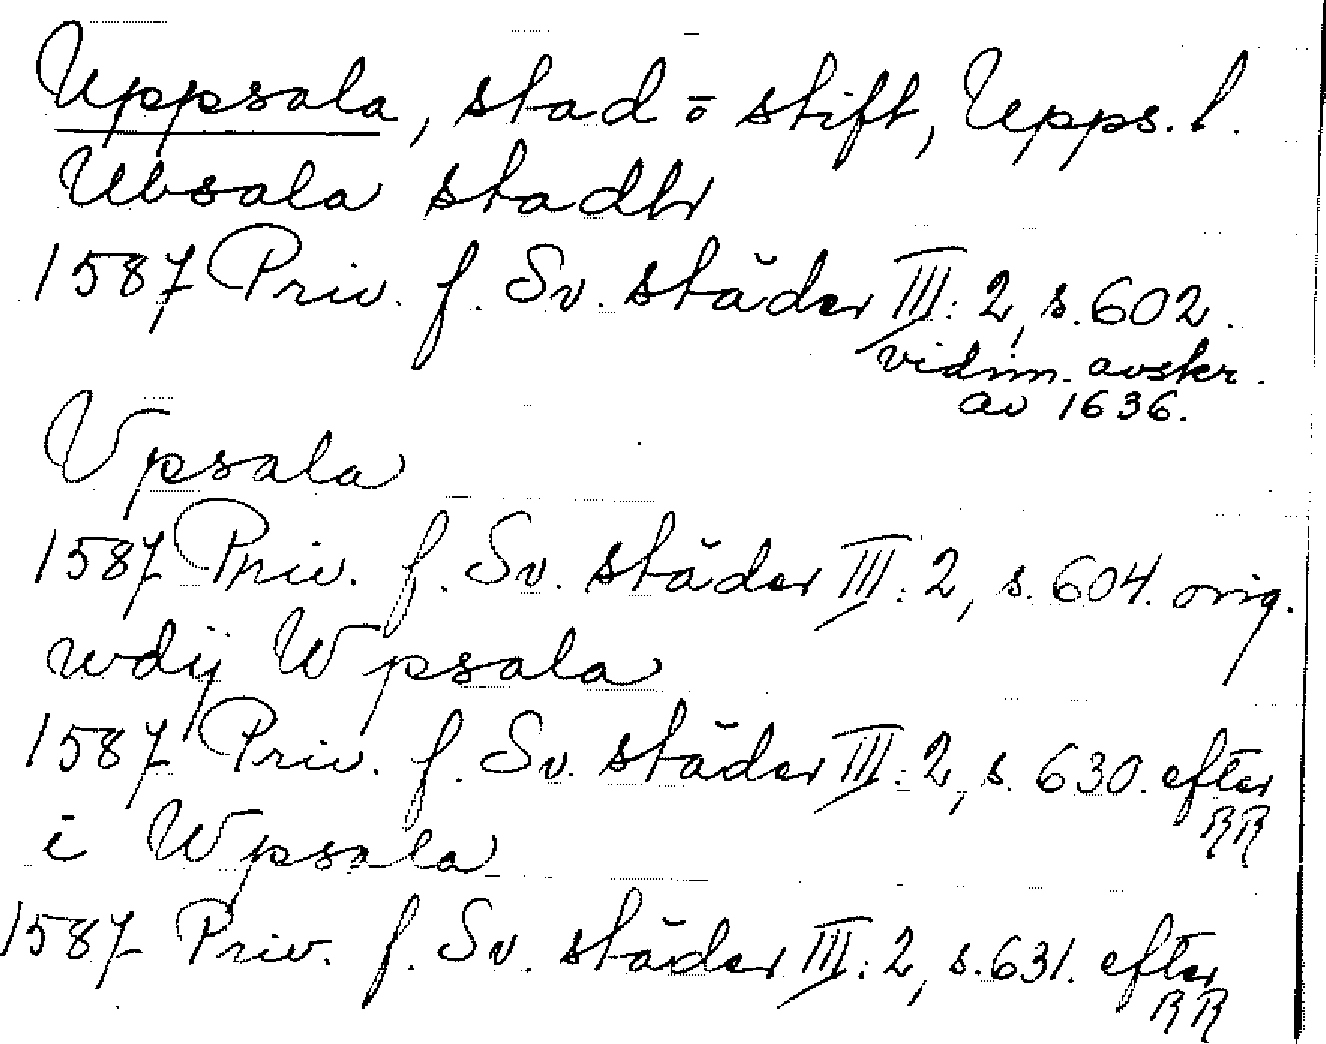 Uppsala, stad o stift, Upps. l.
Ubsala stadhr
1587 Priv. f. Sv. städer III: 2, s. 602.
vidim. avskr.
av 1636.
Vpsala
1587 Priv. f. Sv. städer III: 2, s. 604. orig.
wdij Wpsala
1587 Priv. f. Sv. städer III: 2, s. 630. efter
RR
i Wpsala
1587 Priv. f. Sv. städer III: 2, s. 631. efter
RR